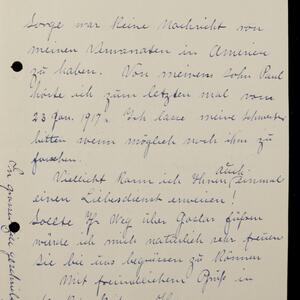 Sorge war keine Nachricht von
meinen Verwandten in America
zu haben. Von meinem Sohn Paul
hörte ich zum letzten mal vom
23 Jan. 1917. Ich lasse meine Schwester
bitten wenn möglich nach ihm zu
forschen.
Vielleicht kann ich Ihnen auch einmal
einen Liebesdienst erweisen!
Sollte Ihr Weg über Goslar führen
würde ich mich natürlich sehr freuen
Sie bei uns begrüssen zu können
Mit freundlichem Gruss in
In grosser Eile geschrieben